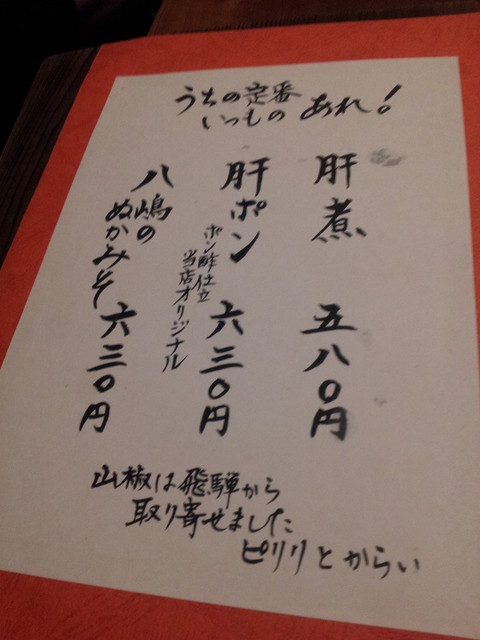 うちの定番
いつもの あれ!
肝煮 五八〇円
肝ポン 六三〇円
ポン酢仕立
当店オリジナル
八嶋の
ぬかみそ 六三〇円
山椒は飛騨から
取り寄せました
ピリリとからい